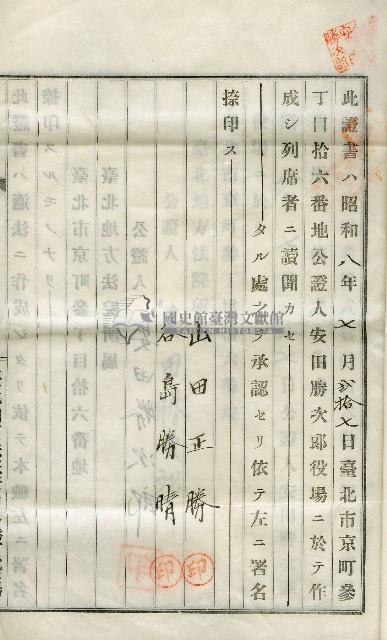 此證書ハ昭和八年七月貳拾七日臺北市京町參
丁目拾六番地公證人安田勝次郎役場ニ於テ作
成シ列席者ニ讀聞カセ
タル處之ヲ承認セリ依テ左ニ署名
捺印ス
山田正勝
石島勝晴
印
印
國史館臺灣文獻館
TAIWAN HISTORICA